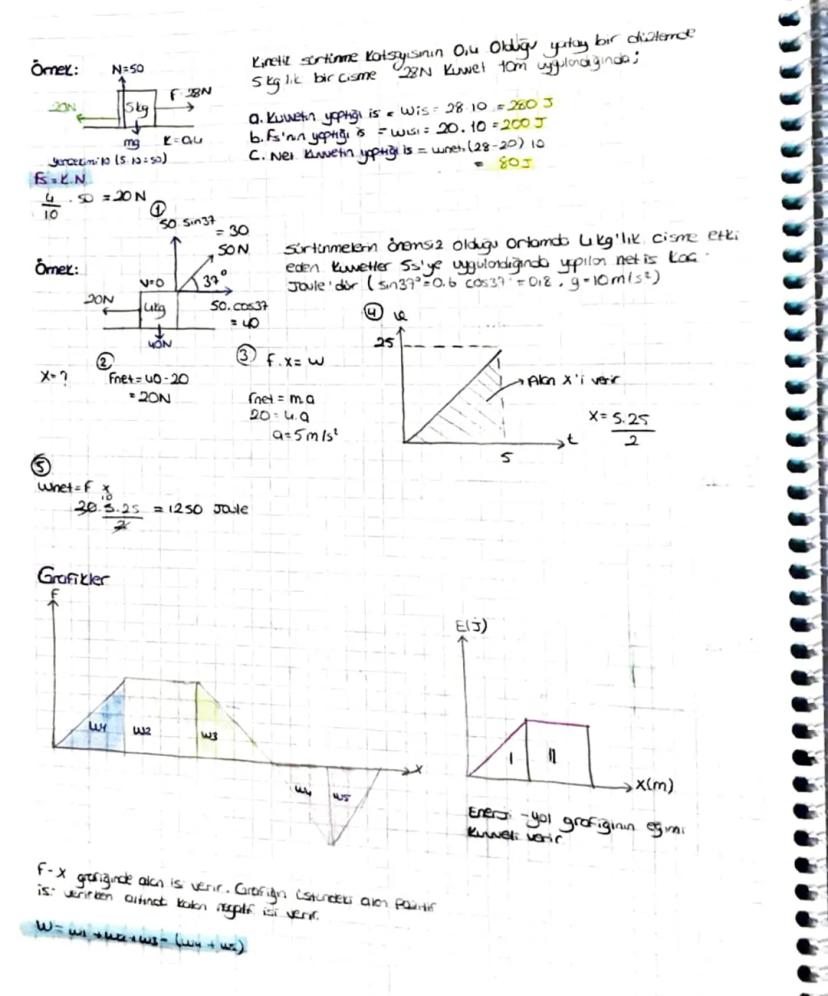 Örnek:
N=50
5kg
F=28N
20N
mg
K=0,4
yerçekimi 10 (5.10=50)
fs=K.N
4/10 . 50 = 20N
Kinetik sürtünme katsayısının 0,4 olduğu yatay bir düzlemde
5 kg'lık bir cisme 28N kuvvet 10m uygulandığında;
a. Kuvvetin yaptığı iş = Wiş = 28.10 = 280 J
b. Fs'nin yaptığı iş = Wısı = 20.10 = 200 J
C. Net kuvvetin yaptığı iş = Wnet. (28-20) 10
= 80J
Örnek:
①
50.sin37
= 30
50N
37°
V=0
20N
4kg
40N
50.cos37
= 40
Sürtünmelerin önemsiz olduğu ortamda 4kg'lık cisme etki
eden kuvvetler 5s'ye uygulandığında yapılan net iş kaç
Joule'dür (sin37°=0.6 cos37°=0,8, g=10m/s²)
X=?
②
Fnet=40-20
= 20N
③ f.x=w
fnet = m.a
20=4.a
a=5m/s²
④
25
Alan X'i verir
t
5
X=5.25/2
⑤
Wnet=F x
10
20.5.25/2 = 1250 Joule
Grafikler
F
W1
W2
W3
W4
W5
X
E(J)
I
II
X(m)
Enerji-yol grafiğinin eğimi
kuvveti verir
F-X grafiğinde alan iş verir. Grafiğin üstündeki alan pozitif
iş verirken altında kalan negatif işi verir.
W=W1+W2+W3-(W4+W5)